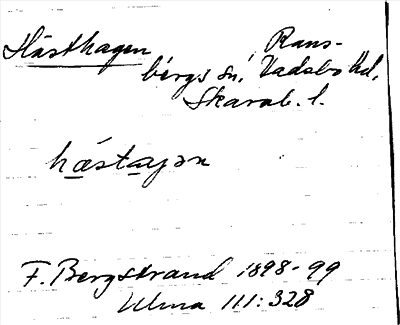 Hästhagen Rans-
bergs sn, Vadsbo hd,
Skarab. l.
hästajən
F. Bergstrand 1898-99
Ulma 111:328